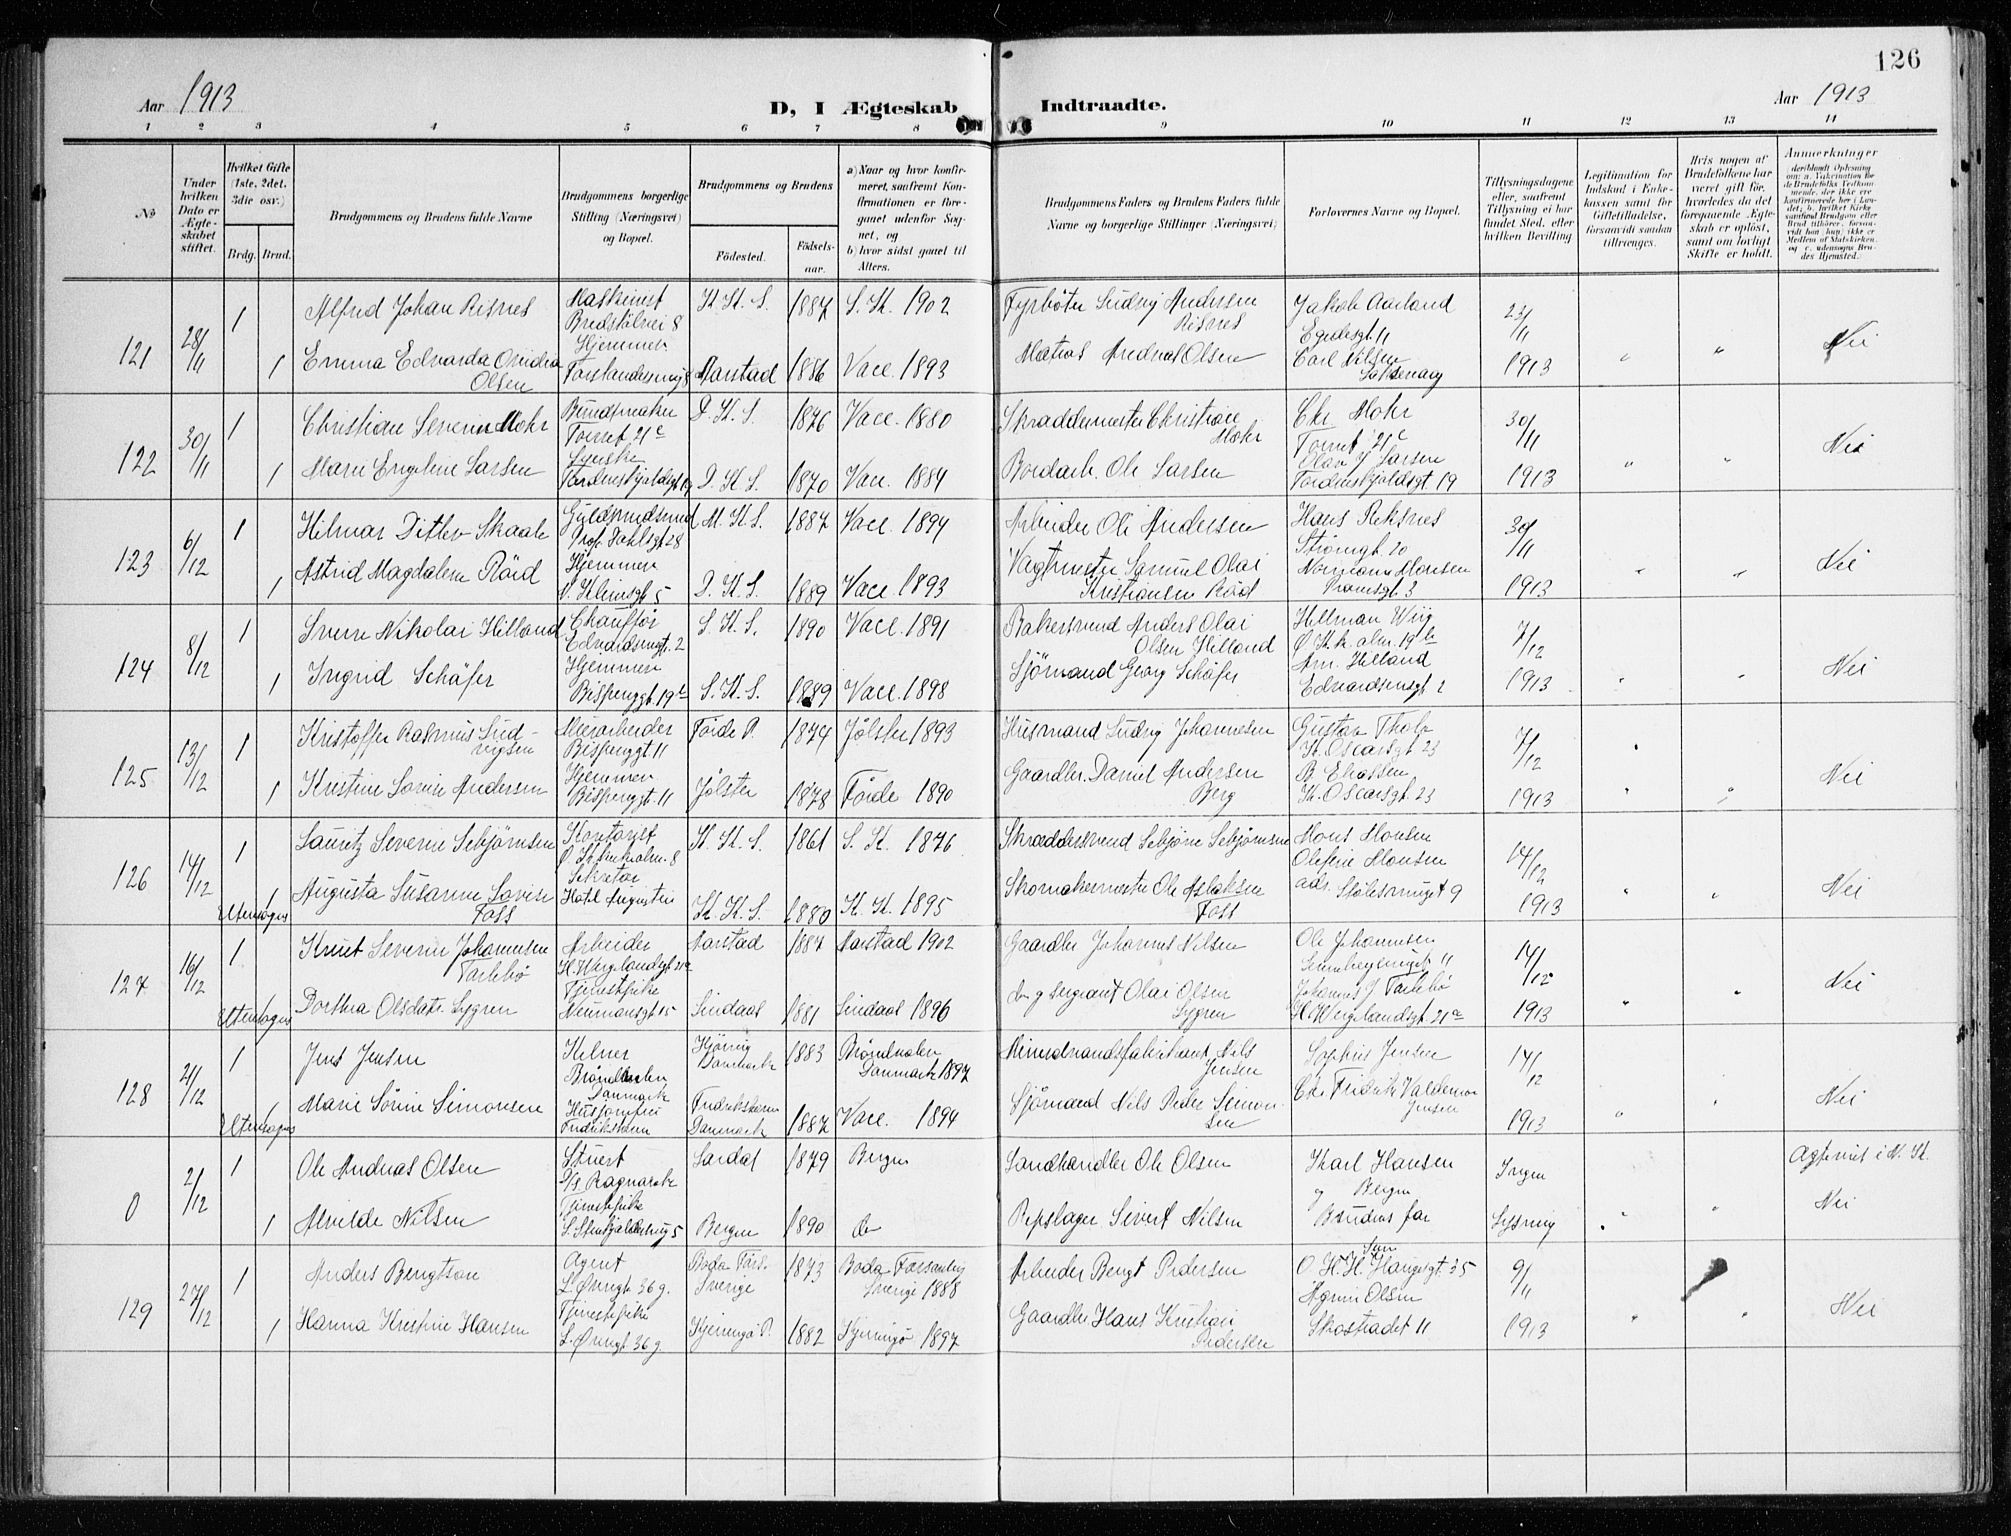 126
Aar 1913
D, I Ægteskab Indtraadte.
Aar 1913
1 2 3 4 5 6 7 8 9 10 11 12 13 14
No
Under hvilken Dato er Ægteskabet stiftet.
Hvilket Gifte (1ste, 2det, 3die osv.)
Brdg. Brud.
Brudgommens og Brudens fulde Navne
Brudgommens borgerlige Stilling (Næringsvei) og Bopæl.
Brudgommens og Brudens
Födested.
Födselsaar.
a) Naar og hvor konfirmeret, saafremt Konfirmationen er foregaaet udenfor Sognet, og
b) hvor sidst gaaet til Alters.
Brudgommens Faders og Brudens Faders fulde Navne og borgerlige Stillinger (Næringsvei)
Forlovernes Navne og Bopæl.
Tillysningsdagene eller, saafremt Tillysning ei har fundet Sted, efter hvilken Bevilling
Legitimation for Indskud i Enkekassen samt for Giftetilladelse, forsaavidt saadan tiltrænges.
Hvis nogen af Brudefolkene har været gift för, hvorledes da det foregaaende Ægteskab er oplöst, samt om lovligt Skifte er holdt.
Anmerkninger
121
28/11
1
Alfred Johan Risnes
Maskinist
K. K. S.
1887
S. K. 1902
Fyrböter Ludvig Andersen Risnes
Jakob Aarland
Egedesgt 11
23/11
1
Emma Edvarda Ovidia Olsen
Hjemmev.
Aarstad
1886
Vacc. 1893
Matros Andreas Olsen
Carl Nilsen
1913
Nei
122
30/11
1
Christian Severin Mohr
Buntmaker
Torvet 21c
D. K. S.
1876
Vacc. 1880
Skraddermester Christian Mohr
Chr Mohr
Torvet 21c
30/11
1
Marie Engeline Larsen
Syerske
Tordenskjoldsgt 19
D. K. S.
1870
Vacc. 1884
Bordarb. Ole Larsen
Olav J Larsen
Tordenskjoldsgt 19
1913
Nei
123
6/12
1
Hilmar Ditlev Skaale
Guldsmedsvend
Prof. Dahlsgt 28
M. K. S.
1887
Vacc. 1894
Arbeider Ole Andersen
Hans Reksnes
Strömgt. 20
30/11
1
Astrid Magdalene Röid
Hjemmev.
D. K. S.
1889
Vacc. 1893
Vagtmester Samuel Olai Kristiansen Röd
Normann Monsen
1913
Nei
124
8/12
1
Sverre Nikolai Hilland
Chauffør
Edvardsensgt. 2
S. K. S.
1890
Vacc. 1891
Bakersvend Anders Olai Olsen Hilland
Hellman Wiig
7/12
1
Ingrid Schäfer
Hjemmev.
S. K. S.
1889
Vacc. 1898
Sjömand Georg Schäfer
Am. Helland
Edvardsensgt 2
1913
Nei
125
13/12
1
Kristoffer Rasmus Ludvigsen
Murarbeider
Bispenggt 11
Förde P.
1874
Jølster 1893
Husmand Ludvig Johannesen
Gustav Thole
K. Oscarsgt 23
7/12
1
Kristine Lovise Andersen
Hjemmev.
Bispenggt. 11
Jölster
1878
Förde 1890
Gaardbr. Daniel Andersen Berg
B. Eliassen
K. Oscarsgt. 23
1913
Nei
126
14/12
1
Lauritz Severin Sebjørnsen
Kontorist
K. K. S.
1861
S. K. 1876
Skraddersvend Sebjörn Sebjørnsen
Mons Monsen
14/12
1
Utensogns
Augusta Susanne Lovise Foss
Hotel Augustin
K. K. S.
1880
K. K. 1895
Skomakermester Ole Aslaksen Foss
Olefine Monsen
adr. Stölesmuget 9
1913
Nei
127
16/12
1
Knut Severin Johannesen Tarlebö
Arbeider
H. Wergelandsgt 21a
Aarstad
1887
Aarstad 1902
Gaardbr Johannes Nilsen
Ole Johannesen
14/12
Utensogns
Dorthea Olsdatr. Sygren
Tjenestpike
Neumansgt 15
Lindaas
1881
Lindaas 1896
do g sergeant Olai Olsen Sygren
Johannes J Tarlebö
H. Wergelandsgt. 21a
1913
Nei
128
21/12
1
Jens Jensen
Kelner
Danmark
Hjörring Danmark
1883
Danmark 1897
Nils Jensen
Sophus Jensen
14/12
1
Utensogns
Marie Sörine Simonsen
Fredrikshavn
Fredrikshavn Danmark
1887
Vacc. 1894
Sjömand Nils Peder Simonsen
Chr Fredrik Valdemar Jensen
1913
Nei
0
2/12
1
Ole Andreas Olsen
Stuert
D/S Ragnarok
1879
Bergen
Landhandler Ole Olsen
Karl Hansen
Bergen
Ingen
Agteviet i N. K.
1
Alvilde Nilsen
Tjenestpike
Bergen
1890
do
Repslager Sivert Nilsen
og Brudens far
Lysning
Nei
129
27/12
1
Anders Bengtson
Agent
L. Øvregt 36 g.
Boda Förs. Sverige
1873
Boda Forsamling Sverige 1888
Arbeider Bengt Pedersen
O. H. H. Haugesgt. 35
9/11
1
Hanna Kristine Hansen
Tjenestpike
L. Øvregt 36 g.
Kjerringö P.
1882
Kjerringö 1897
Gaardbr Hans Kristian Pedersen
Agnes Olsen
Skostrædet 11
1913
Nei